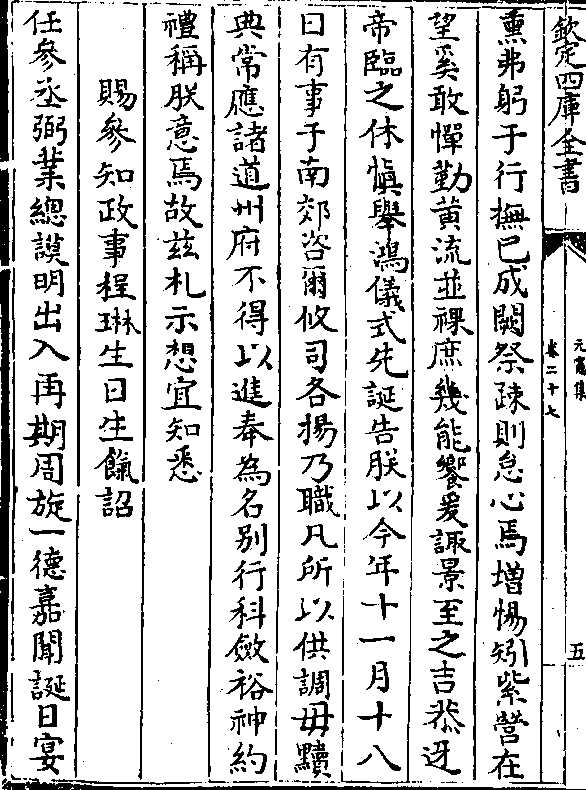 欽定四庫全書
元憲集
卷二十七
五
熏弗躬于行撫已成闕祭疎則怠心焉增惕矧紫營在
望奚敢憚勤黄流並祼庶幾能饗爰諏景至之吉恭迓
帝臨之休慎舉鴻儀式先誕告朕以今年十一月十八
日有事于南郊咨爾攸司各揚乃職凡所以供調毋黷
典常應諸道州府不得以進奉為名别行科斂裕神約
禮稱朕意焉故兹札示想宜知悉
賜參知政事程琳生日生餼詔
任參丞弼業總謨明出入再期周旋一德嘉聞誕日宴